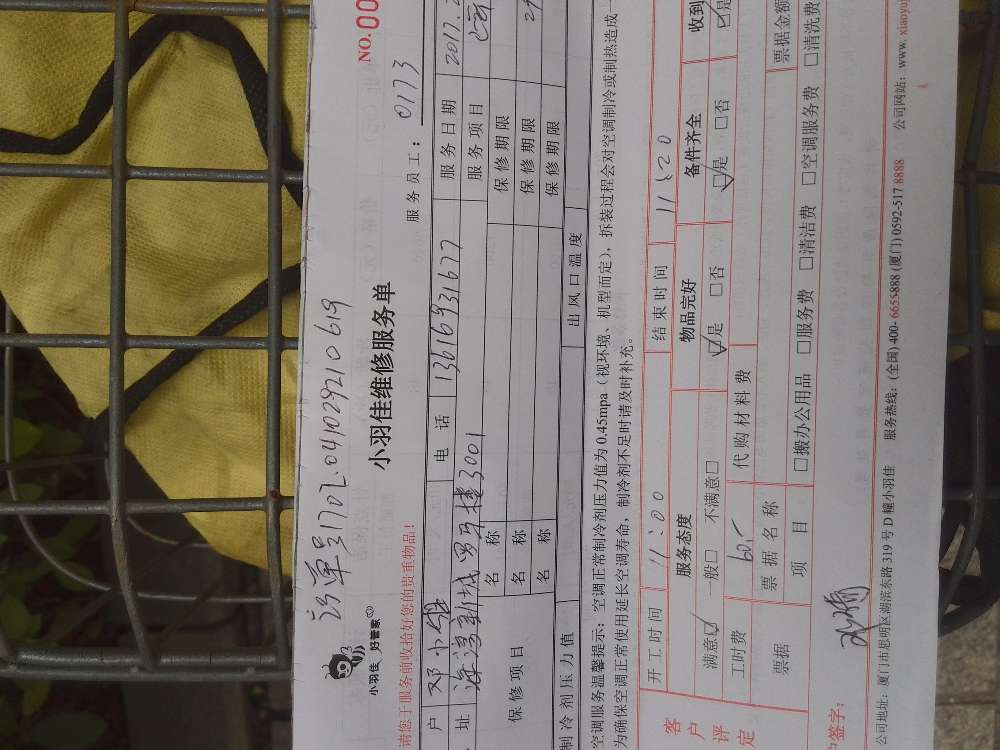 订单号1702.041029210619
小羽佳 好管家
小羽佳维修服务单
NO.00
请您于服务前收拾好您的贵重物品!
服务员工: 0173
户 邓小姐 电话 13616931677 服务日期 2017.2
址 新城 3001 服务项目
保修项目 名称 保修期限
名称 保修期限
名称 保修期限
制冷剂压力值 出风口温度
空调服务温馨提示:空调正常制冷剂压力值为0.45mpa(视环境、机型而定),拆装过程会对空调制冷或制热造成一
为确保空调正常使用延长空调寿命,制冷剂不足时请及时补充。
客户评定
开工时间 11:00 结束时间 11:20
服务态度 物品完好 备件齐全 收到
满意☑ 一般□ 不满意□ ☑是 □否 ☑是 □否 ☑是
工时费 60.- 代购材料费
票据 票据名称 票据金额
项目 □搬办公用品 □服务费 □清洁费 □空调服务费 □清洗费
户签字:
公司地址:厦门市思明区湖滨东路319号D幢小羽佳 服务热线:(全国)400-6655888 (厦门)0592-5178888 公司网站:www.xiaoyuj